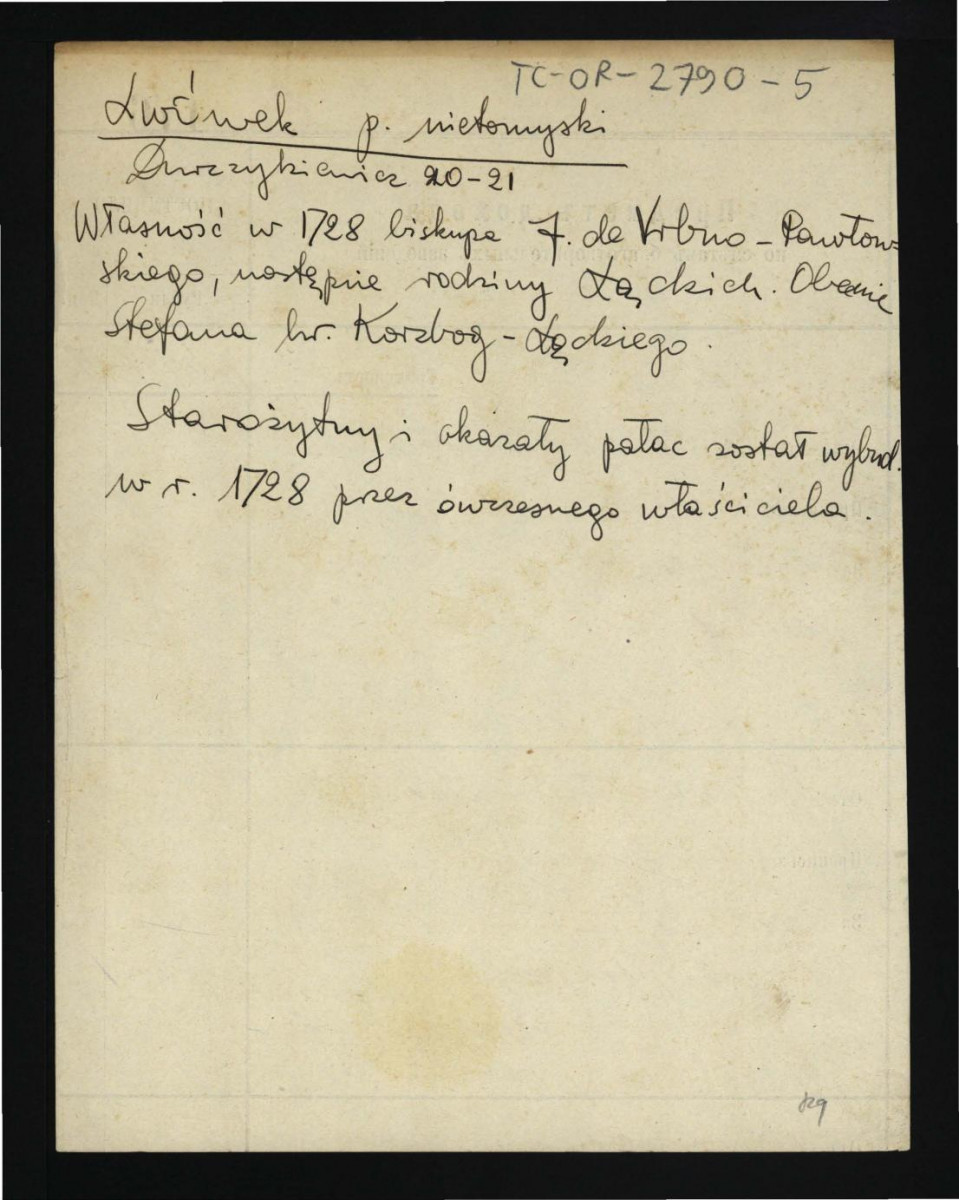 TC-OR-2790-5
Lwówek p. nietomyski
Durczykiewicz 20-21
Własność w 1728 biskupa J. de Vrbno - Pawłow-
skiego, następnie rodziny Łąckich. Obecnie
Stefana hr. Korzbog - Łąckiego.
Starożytny i okazały pałac został wybud.
w r. 1728 przez ówczesnego właściciela.